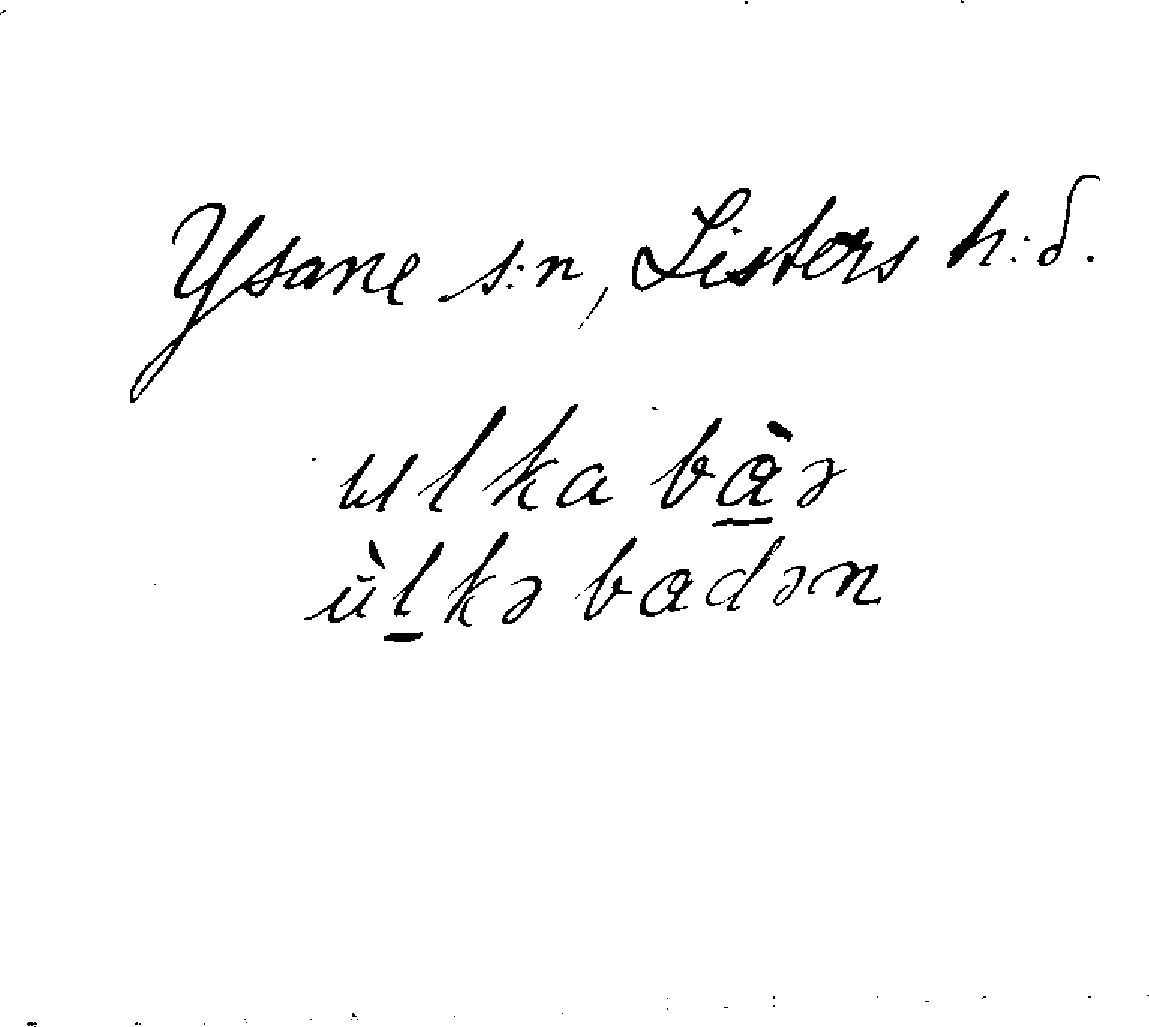 Ysane s:n, Listers h:d.
ulka bà̱ə
ùḻkə badən